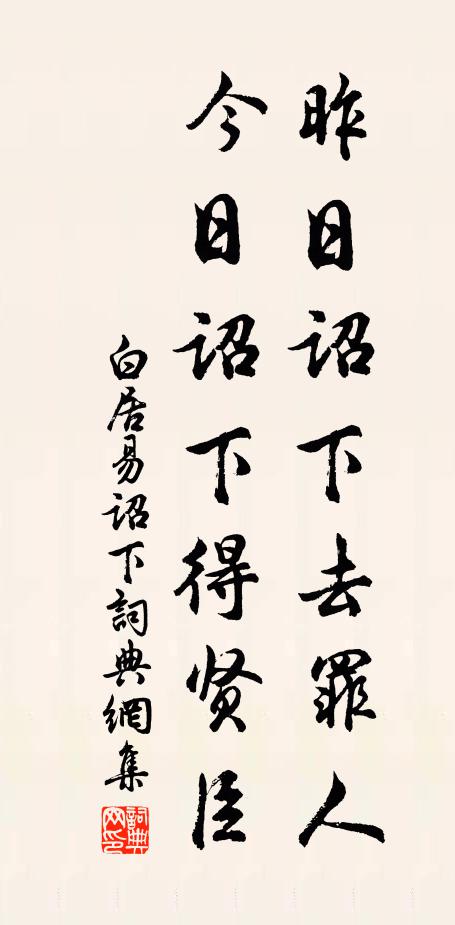 昨日诏下去罪人
今日诏下得贤臣
白居易诏下詞典網集
詞典
网印